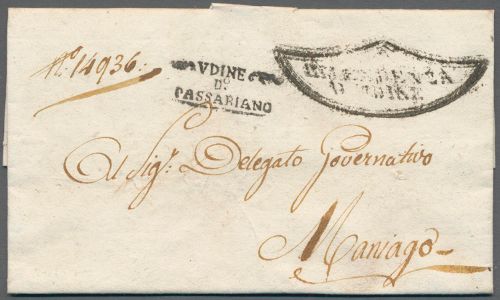 N.º 14936.
VDINE
Dº
PASSARIANO
D'UDINE
Al Sigʳ. Delegato Governativo
Maniago